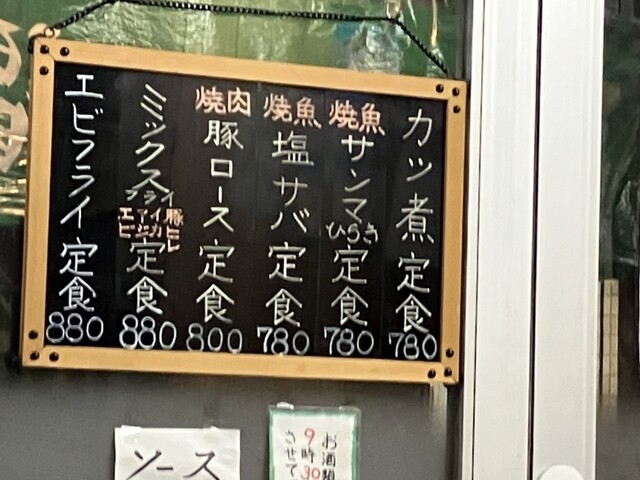 カツ煮定食
780
焼魚
サンマ
ひらき
定食
780
焼魚
塩サバ定食
780
焼肉
豚ロース定食
800
ミックス
フライ
豚ヒレ
イカ
アジ
エビ
定食
880
エビフライ定食
880
お酒類
9時30
させて
ソース